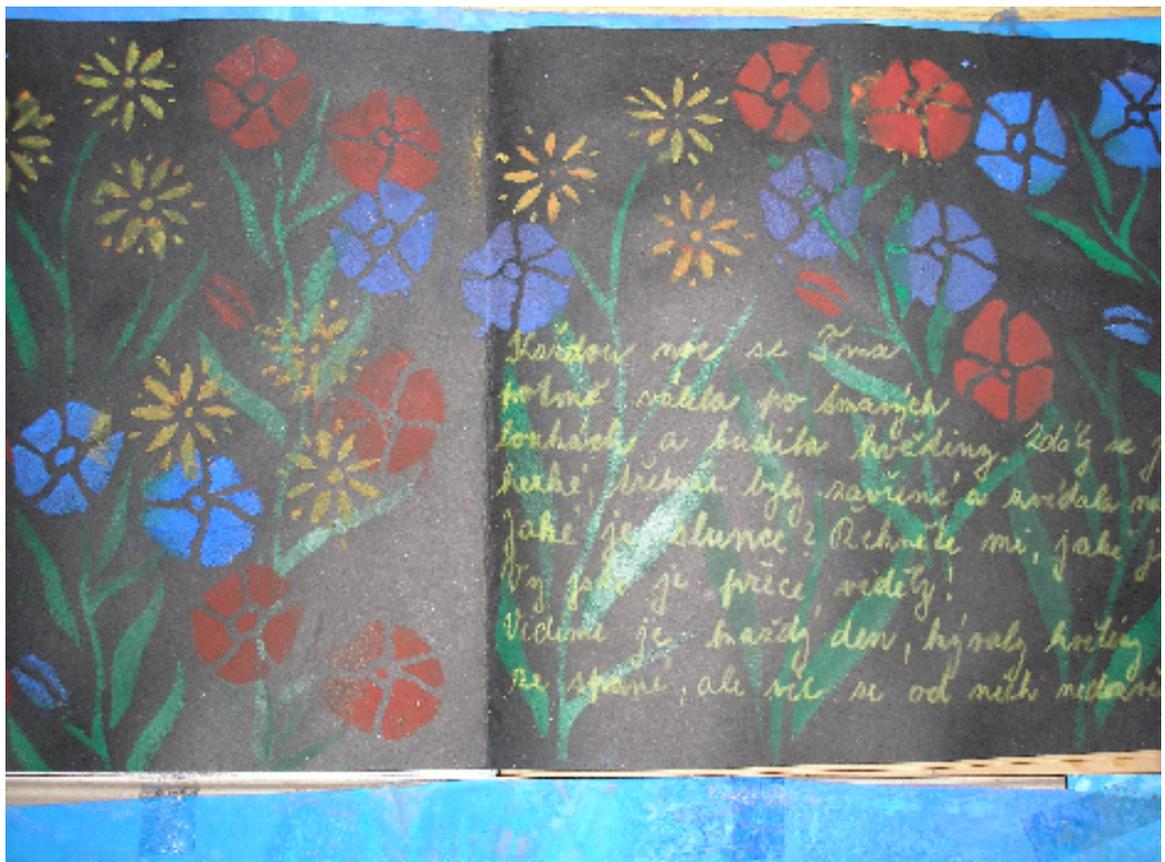 Každou noc se Tma
potmě válela po tmavých
loukách a budila květiny. Zdály se j
hezké, třebaže byly zavřené, a zvědala
Jaké je slunce? Řekněte mi, jaké je
Vy jste je přece viděly!
Vidíme je každý den, kývaly květiny
ze spaní, ale víc se od nich nedozvě